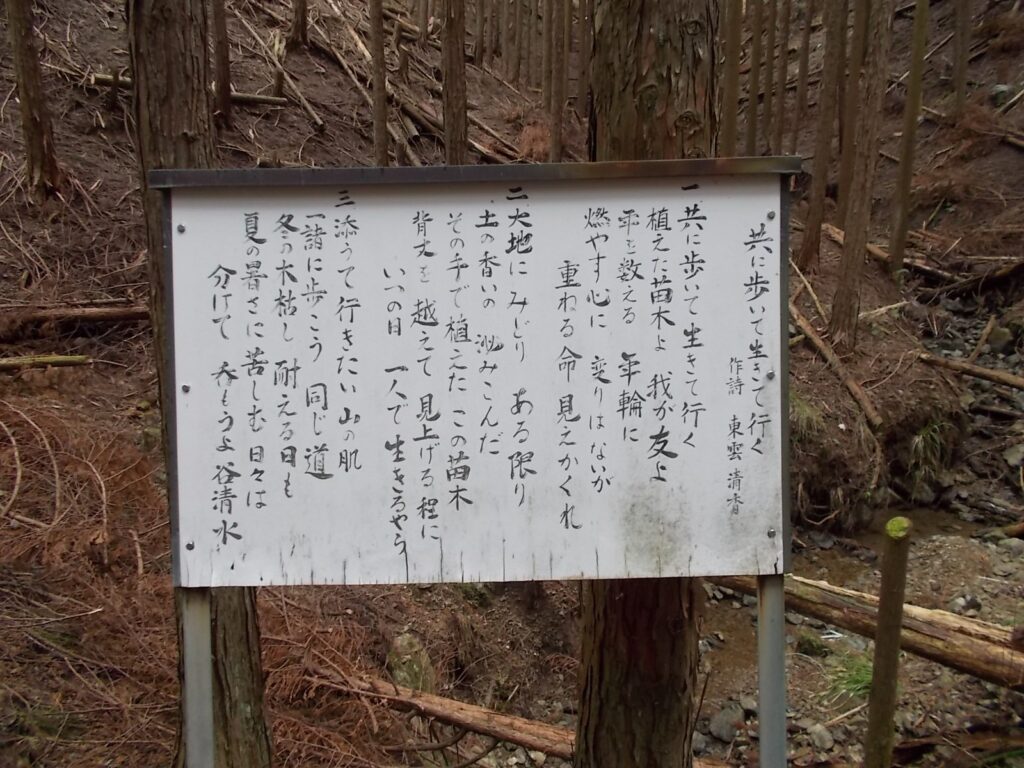 共に歩いて生きて行く
作詩 東雲清香
一 共に歩いて生きて行く
植えた苗木よ 我が友よ
年を数える 年輪に
燃やす心に 変りはないが
重ねる命 見えかくれ
二 大地に みどり ある限り
土の香いの 泌みこんだ
その手で植えた この苗木
背丈を 越えて 見上げる程に
いつの日 一人で 生きるやら
三 添うて 行きたい 山の肌
一諸に歩こう 同じ道
冬の木枯し 耐える日も
夏の暑さに 苦しむ 日々は
分けて 呑もうよ 谷清水